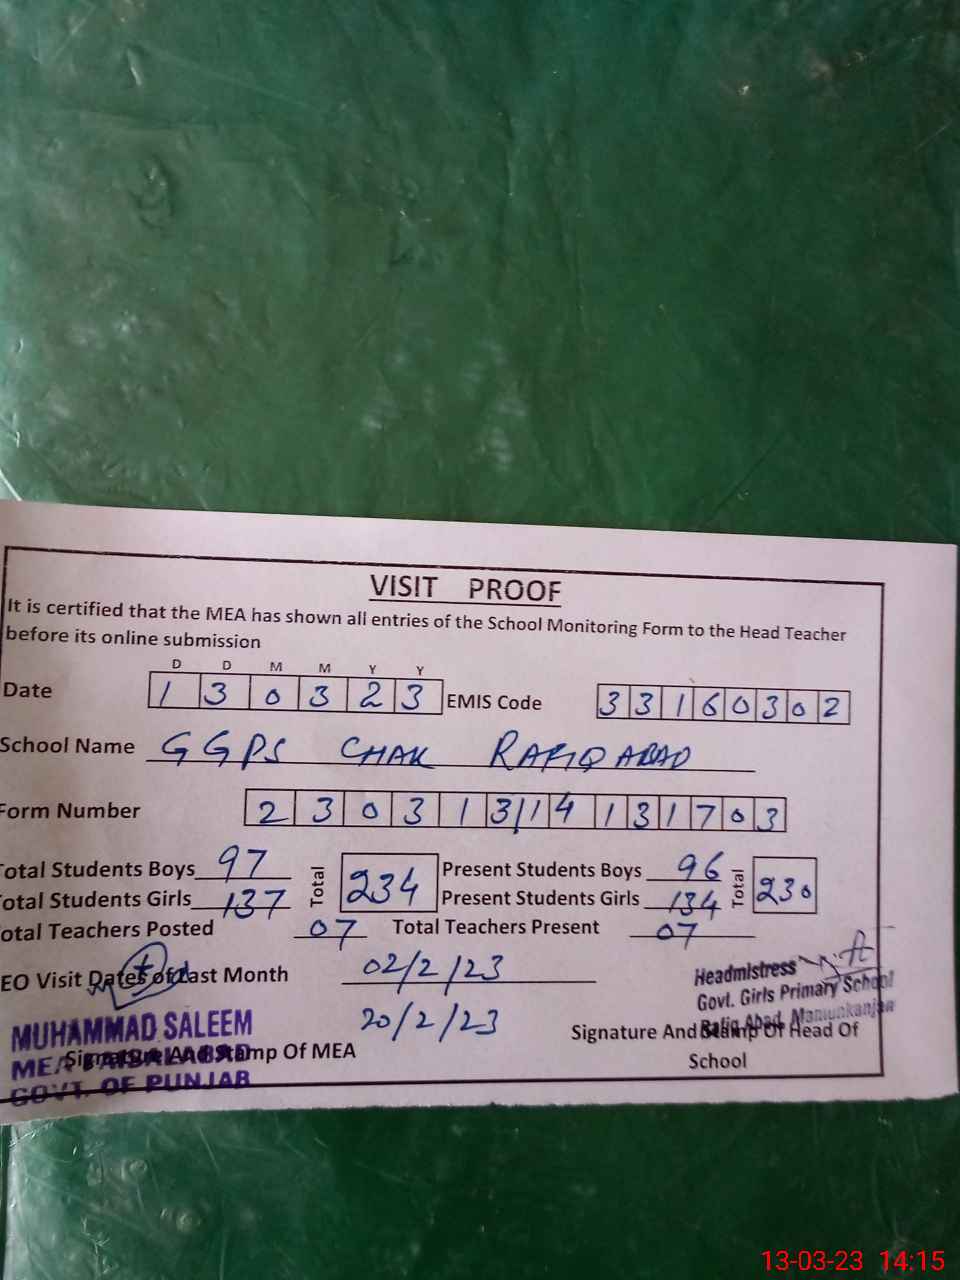 VISIT PROOF
It is certified that the MEA has shown all entries of the School Monitoring Form to the Head Teacher
before its online submission
D D M M Y Y
Date 1 3 0 3 2 3 EMIS Code 3 3 1 6 0 3 0 2
School Name GGPS CHAK RAFIQ ABAD
Form Number 2 3 0 3 1 3 1 4 1 3 1 7 0 3
otal Students Boys 97 Total 234 Present Students Boys 96 Total 230
otal Students Girls 137 Present Students Girls 134
otal Teachers Posted 07 Total Teachers Present 07
EO Visit Dates of Last Month 02/2/23
20/2/23
Headmistress
Govt. Girls Primary School
Rafiq Abad, Mamunkanjan
Signature And Stamp Of Head Of
School
MUHAMMAD SALEEM
MEA FAISALABAD
GOVT. OF PUNJAB
Signature And Stamp Of MEA
13-03-23 14:15